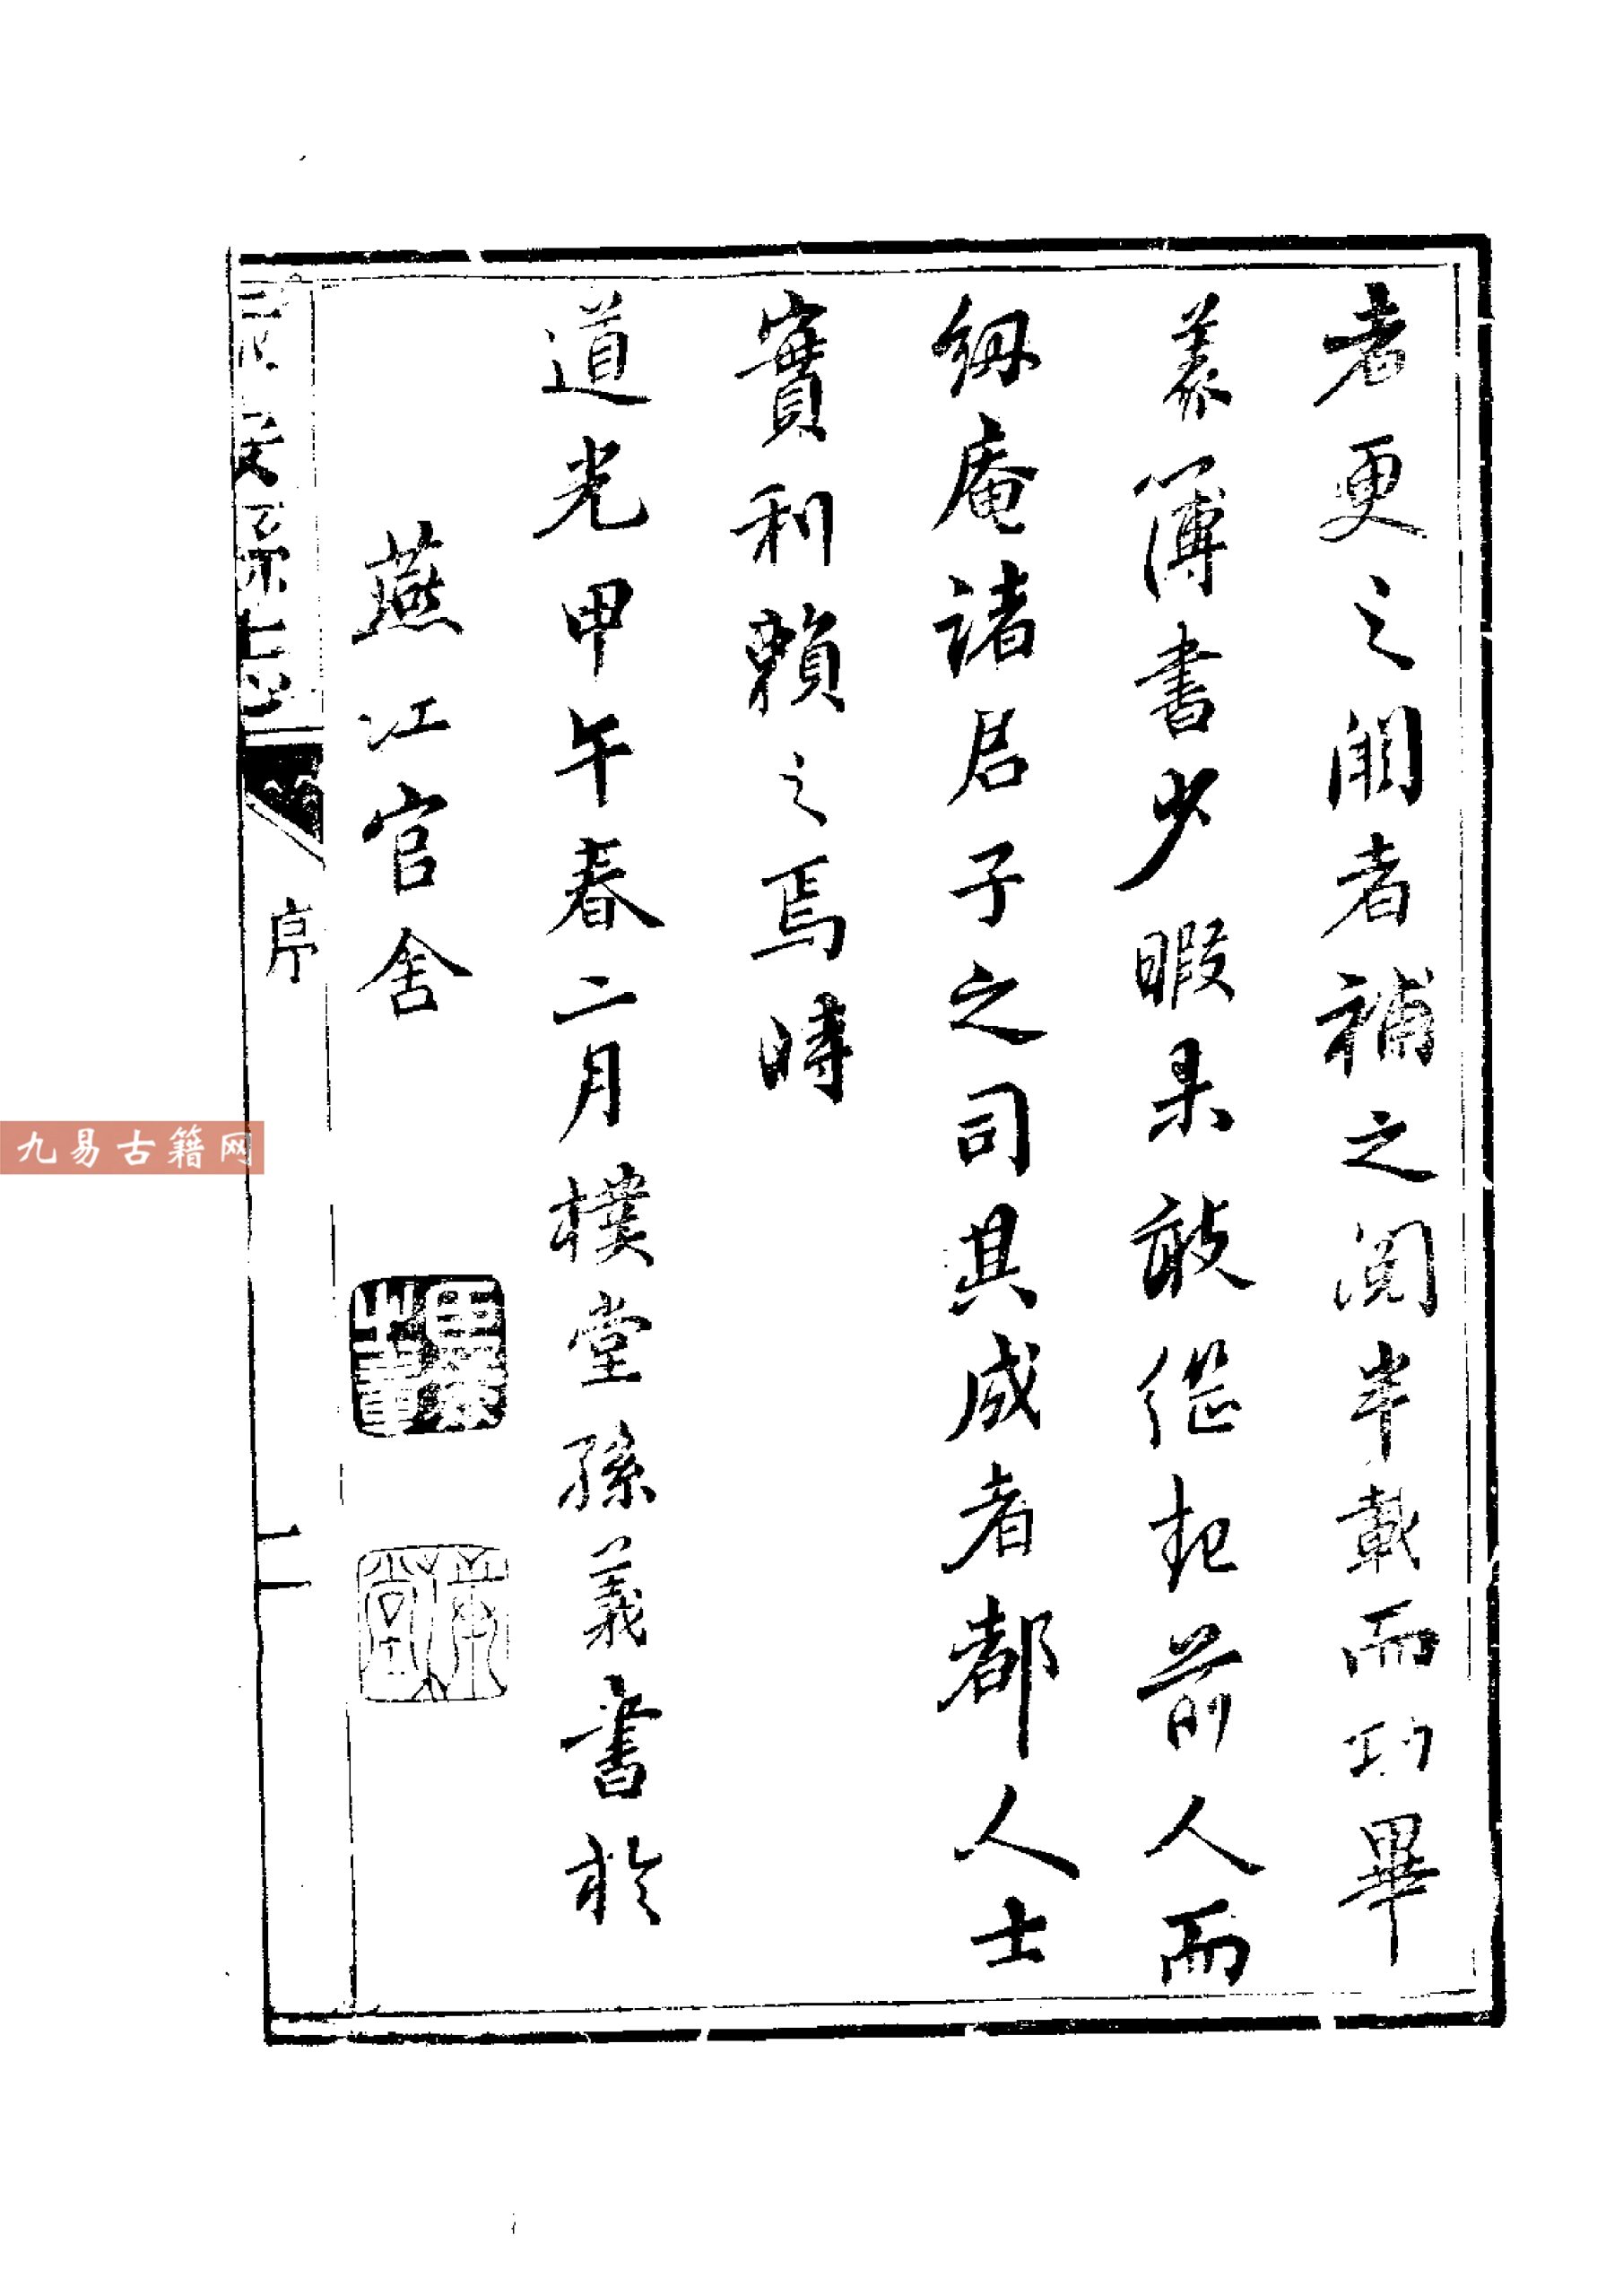 者更之闕者補之閱半載而功畢
義簿書少暇果敢继起前人而
庵諸君子之司其成者都人士
實利賴之焉時
道光甲午春二月樸堂孫義書於
燕江官舍
序
二
九易古籍网